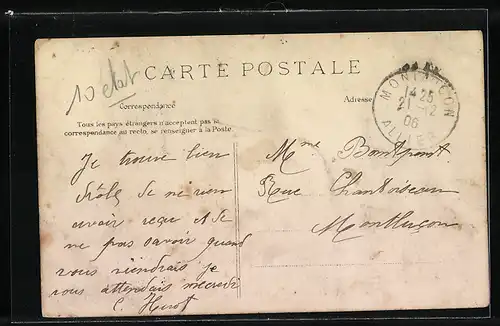 10 état
CARTE POSTALE
MONTLUÇON
14 25
21 -12
06
ALLIER
Correspondance
Adresse
Tous les pays étrangers n'acceptent pas la
correspondance au recto, se renseigner à la Poste.
Je trouve bien
drôle de ne rien
avoir reçu et de
ne pas savoir quand
vous viendrais je
vous attendais mecredi
C. Huot
Mme Bontpont
Rue Chantoiseau
Montluçon